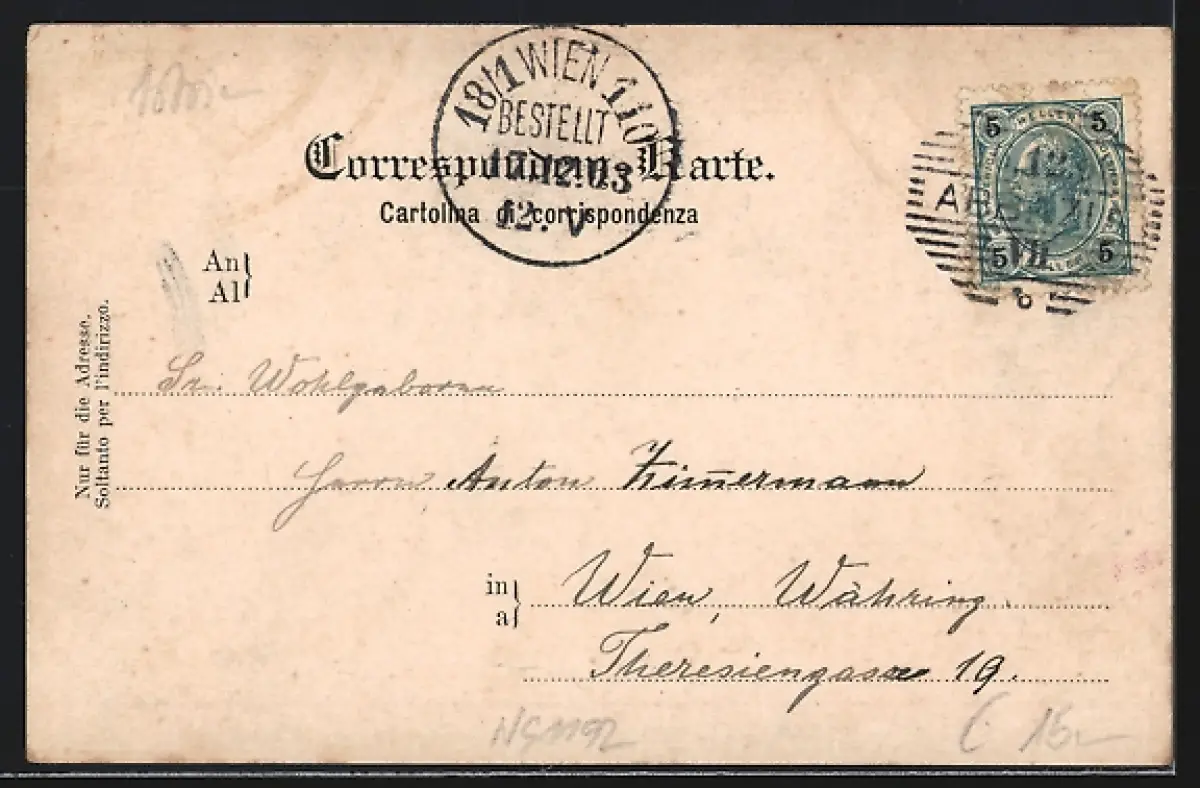 18/1 WIEN 110
BESTELLT
17.12.03
12.V
Correspondenz-Karte.
Cartolina di corrispondenza
5 HELLER 5
12
ABBAZIA
VII
5 5
6
An
Al
Nur für die Adresse.
Soltanto per l'indirizzo.
Sr. Wohlgeboren
Herrn Anton Zimmermann
in
a
Wien, Währing.
Theresiengasse 19.